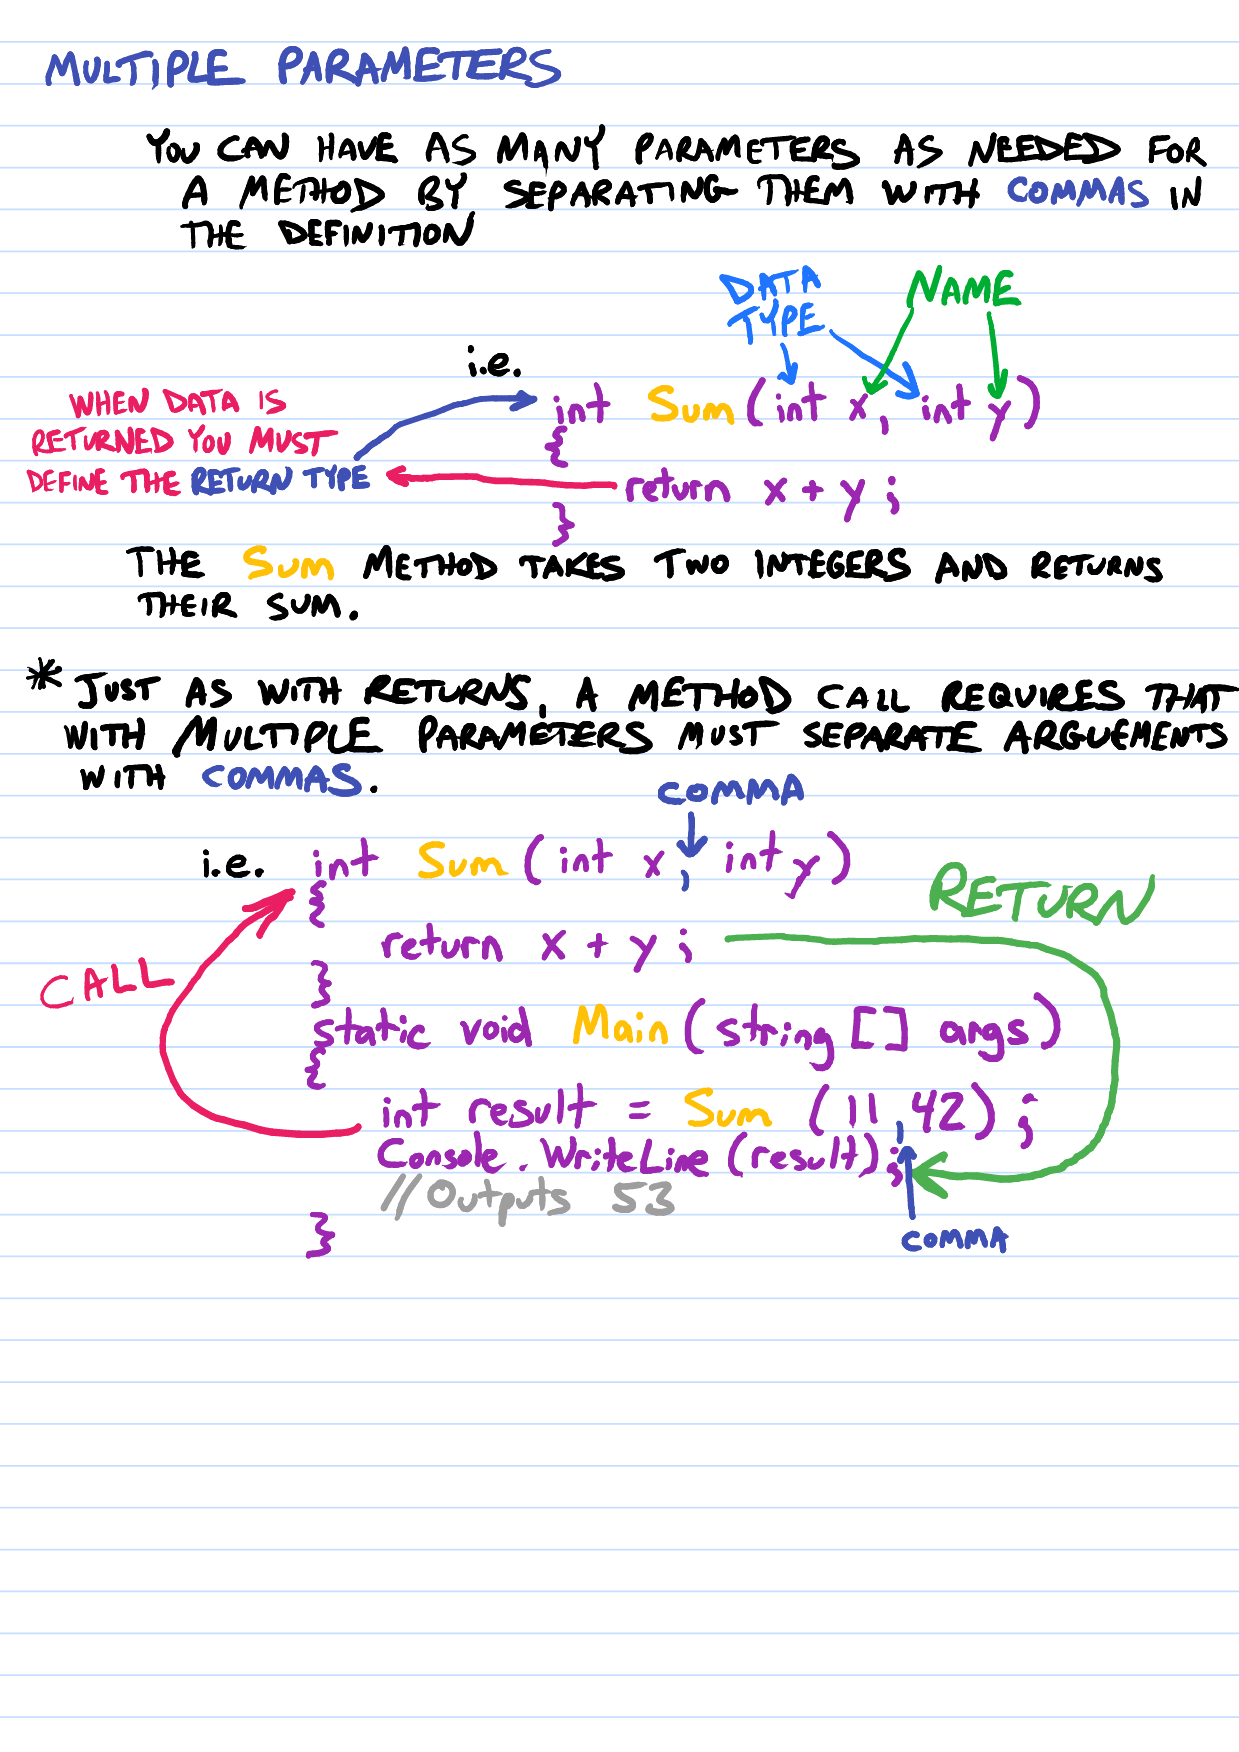 MULTIPLE PARAMETERS
YOU CAN HAVE AS MANY PARAMETERS AS NEEDED FOR
A METHOD BY SEPARATING THEM WITH COMMAS IN
THE DEFINITION
DATA
TYPE
NAME
i.e.
WHEN DATA IS
RETURNED YOU MUST
DEFINE THE RETURN TYPE
int Sum (int x, int y)
{
return x + y ;
}
THE Sum METHOD TAKES TWO INTEGERS AND RETURNS
THEIR SUM.
* JUST AS WITH RETURNS, A METHOD CALL REQUIRES THAT
WITH MULTIPLE PARAMETERS MUST SEPARATE ARGUEMENTS
WITH COMMAS.
COMMA
i.e. int Sum (int x , int y)
{
RETURN
return x + y ;
CALL
}
static void Main (string [] args)
{
int result = Sum (11,42) ;
Console.WriteLine (result);
//Outputs 53
}
COMMA